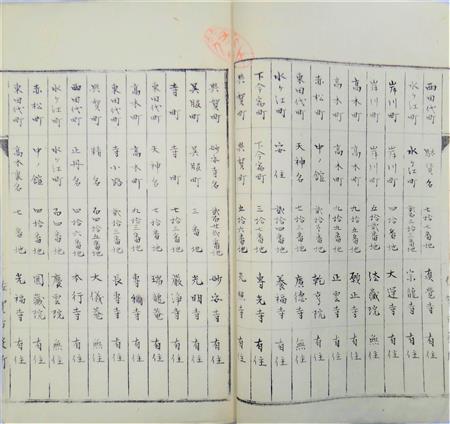 西田代町 七拾七番地 真覺寺 有住
水ヶ江町 水ヶ江町 番地 宗龍寺 有住
岸川町 岸川町 番地 大運寺 有住
岸川町 岸川町 五拾三番地 法蔵院 無住
高木町 高木町 九拾五番地 願正寺 有住
高木町 高木町 九拾九番地 正雲寺 有住
赤松町 中ノ舘 番地 乾亨院 有住
東田代町 天神名 番地 廣徳寺 無住
水ヶ江町 安住 番地 養福寺 有住
下今宿町 下今宿町 三拾七番地 專光寺 有住
與賀町 與賀町 五拾六番地 光照寺 有住
與賀町 妙安寺名 番地 妙安寺 有住
呉服町 呉服町 三番地 光明寺 有住
寺町 寺町 七拾三番地 嚴淨寺 有住
東田代町 天神名 七拾番地 瑞龍菴 有住
高木町 高木町 九拾三番地 專稱寺 有住
東田代町 寺小路 貳拾三番地 長壽寺 有住
與賀町 精名 百四拾五番地 大儀菴 無住
西田代町 正丹名 四拾六番地 本行寺 有住
水ヶ江町 水ヶ江町 百四番地 慶雲院 無住
赤松町 中ノ舘 四拾番地 圓蔵院 有住
東田代町 高木裏名 七番地 光福寺 有住